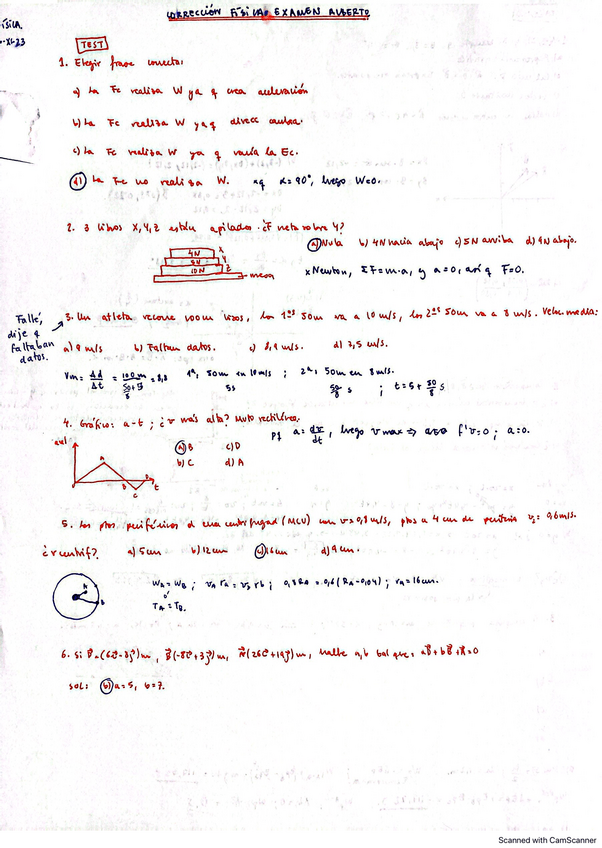 CORRECCIÓN FÍSICA EXAMEN ALBERTO
ÍSICA.
-XI-23
TEST
1. Elegir frase correcta:
a) La Fc realiza W ya q crea aceleración
b) La Fc realiza W ya q
c) La Fc realiza W ya q varía la Ec.
d) La Fc no realiza W. α=90°, luego W=0.
2. 3 libros X, Y, Z están apilados. ¿F neta sobre Y?
a) Nula b) 4N hacia abajo c) 5N arriba d) 9N abajo.
4N X
5N Y
10N Z
mesa
x Newton, ΣF=m·a, y a=0, así q F=0.
Fallé,
dije q
faltaban
datos.
3. Un atleta recorre 100m lisos, los 1ᵒˢ 50m va a 10 m/s, los 2ᵒˢ 50m va a 8 m/s. Veloc. media:
a) 9 m/s b) Faltan datos. c) 8,9 m/s. d) 7,5 m/s.
Vm = Δd/Δt = 100m/(50/8+5) = 8,8 1ª, 50m en 10m/s ; 2ª, 50m en 8m/s.
5s 50/8 s ; t=5+50/8 s
4. Gráfico: a-t ; ¿v más alta? Mvto rectilíneo,
a) B c) D
b) C d) A
pq a = dv/dt, luego v max ⇒ f'v=0 ; a=0.
A B C D t
5. Los ptos periféricos d una centrifugad (MCU) con v=0,8m/s, ptos a 4cm de periferia v₂=0,6m/s.
¿r centrif? a) 5cm b) 12cm c) 16cm d) 9cm.
A B
WA=WB ; 0,8RA=0,6(RA-0,04) ; rA=16cm.
o'
TA=TB.
6. Si (6i-8j)m, B(-8i+3j)m, (26i+19j)m, halle a,b tal que:
sol: b) a=5, b=7.
Scanned with CamScanner